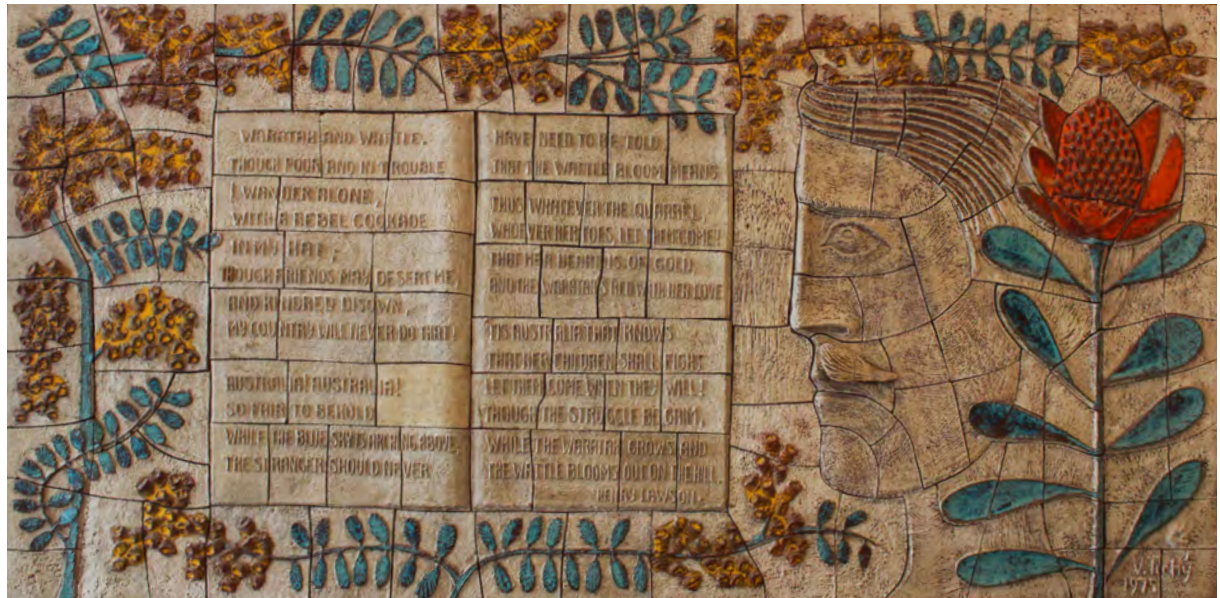 WARATAH AND WATTLE.
THOUGH POOR AND IN TROUBLE
I WANDER ALONE,
WITH A REBEL COCKADE
IN MY HAT;
THOUGH FRIENDS MAY DESERT ME,
AND KINDRED DISOWN,
MY COUNTRY WILL NEVER DO THAT!
AUSTRALIA! AUSTRALIA!
SO FAIR TO BEHOLD
WHILE THE BLUE SKY IS ARCHING ABOVE,
THE STRANGER SHOULD NEVER
HAVE NEED TO BE TOLD
THAT THE WATTLE BLOOM MEANS
THUS WHATEVER THE QUARREL,
WHOEVER HER FOES, LET THEM COME!
THAT HER HEART IS OF GOLD
AND THE WARATAH'S RED WITH HER LOVE
'TIS AUSTRALIA THAT KNOWS
THAT HER CHILDREN SHALL FIGHT
LET THEM COME WHEN THEY WILL!
THOUGH THE STRUGGLE BE GRIM,
WHILE THE WARATAH GROWS AND
THE WATTLE BLOOMS OUT ON THE HILL.
HENRY LAWSON.
1975